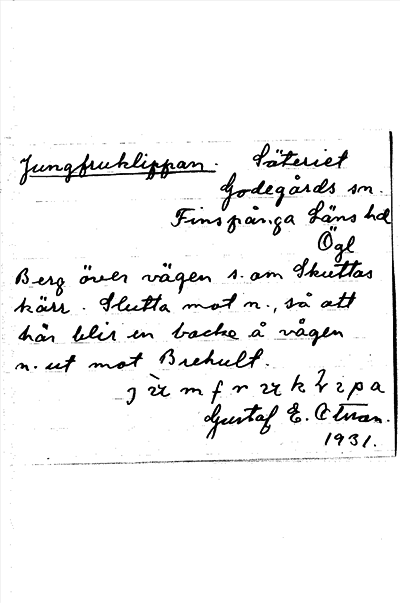 Jungfruklippan. Säteriet
Godegårds sn.
Finspånga Läns hd
Ögl
Berg över vägen s. om Skuttas
kärr. Slutta mot n., så att
här blir en backe å vägen
n. ut mot Brehult.
Gustaf E.
1931.